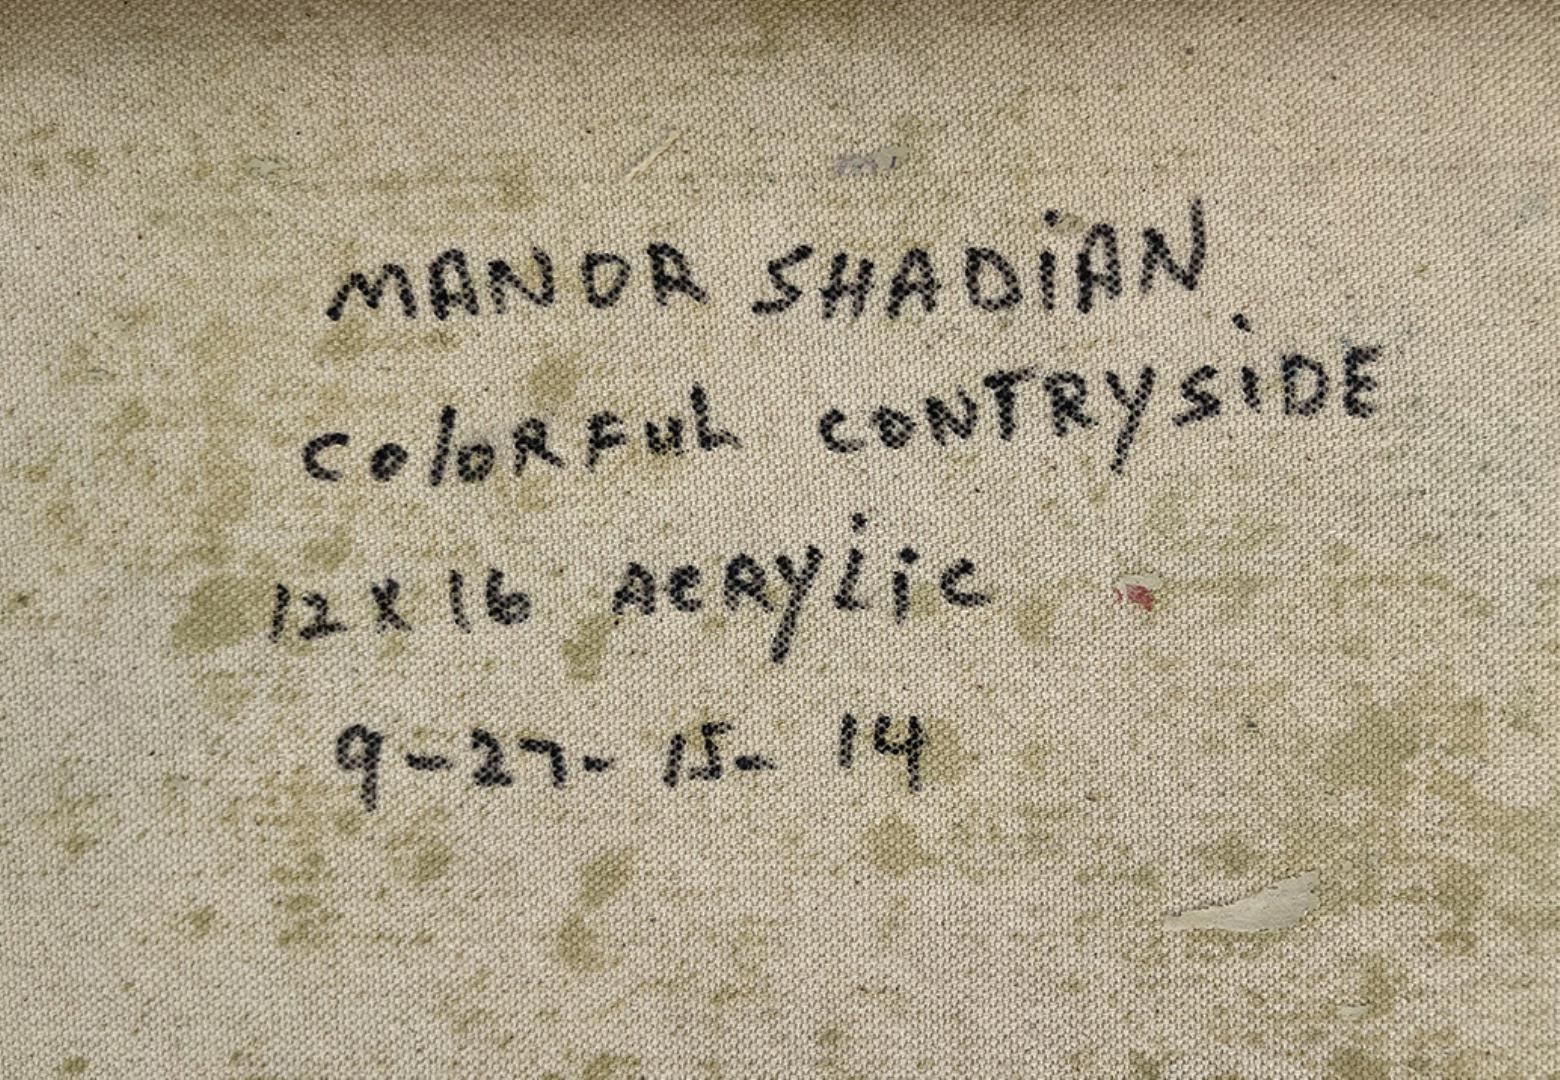 MANOR SHADiAN
ColORFUL CONTRYSiDE
12X16 ACRYLiC
9-27-15- 14